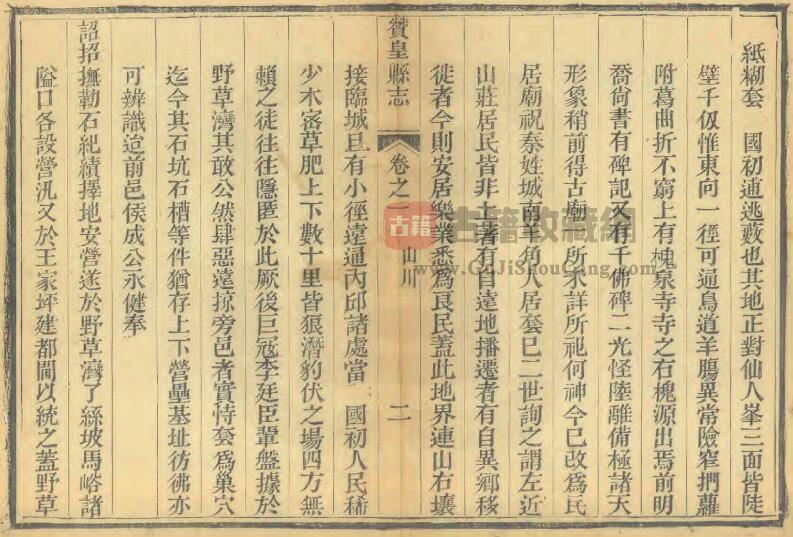 紙糊套　國初逋逃藪也其地正對仙人峯三面皆陡
壁千仭惟東向一徑可通鳥道羊腸異常險窄捫蘿
附葛曲折不窮上有槐泉寺寺之右槐源出焉前明
喬尙書有碑記又有千佛碑二光怪陸離備極諸天
形象稍前得古廟一所未詳所祀何神今已改爲民
居廟祝秦姓城南羊角人居套巳二世詢之謂左近
山莊居民皆非土著有自遠地播遷者有自異鄉移
徙者今則安居樂業悉爲良民蓋此地界連山右壤
贊皇縣志
卷之
山川
二
接臨城且有小徑遠通内邱諸處當　國初人民稀
少木宻草肥上下數十里皆狼潛豹伏之場四方無
賴之徒往往隱匿於此厥後巨寇李廷臣輩盤據於
野草灣其敢公然肆惡遠掠旁邑者實恃套爲巢穴
迄今其石坑石槽等件猶存上下營壘基址彷彿亦
可辨識迨前邑侯成公永健奉
詔招撫勒石紀績擇地安營遂於野草灣了絲坡馬峪諸
隘口各設營汛又於王家坪建都閫以統之蓋野草
古籍
古籍收藏網
www.GuJiShouCang.com